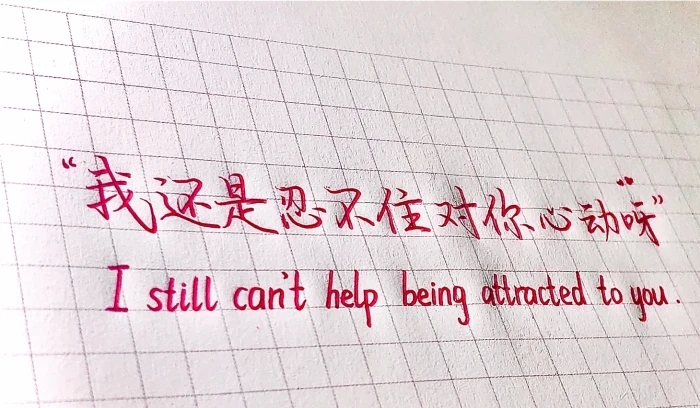 “我还是忍不住对你心动呀”
I still can't help being attracted to you.